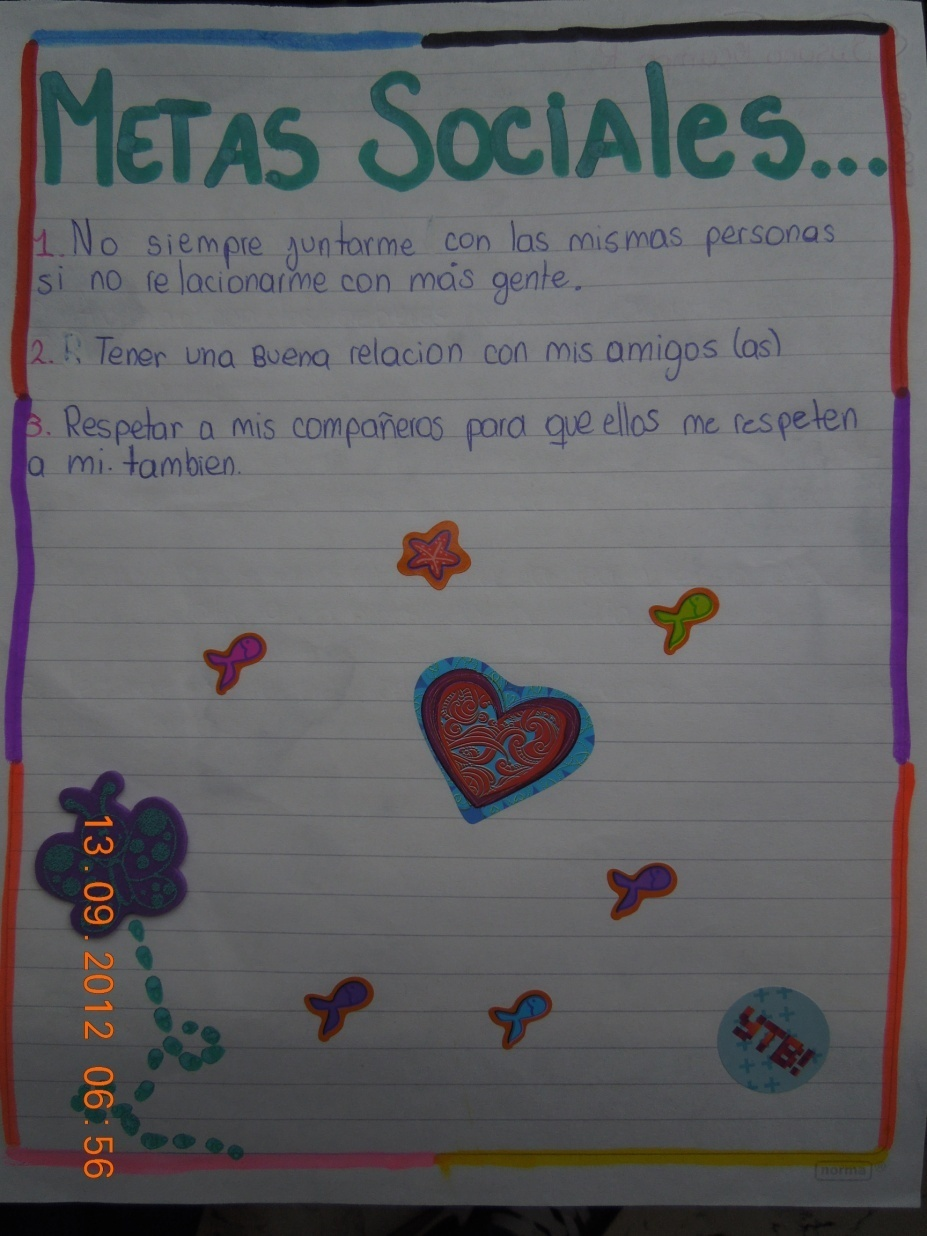 METAS SOCIAles...
1. No siempre juntarme con las mismas personas
si no relacionarme con más gente.
2. R Tener una Buena relacion con mis amigos (as)
3. Respetar a mis compañeros para que ellos me respeten
a mi. tambien.
YTB!
norma
13.09.2012 06:56